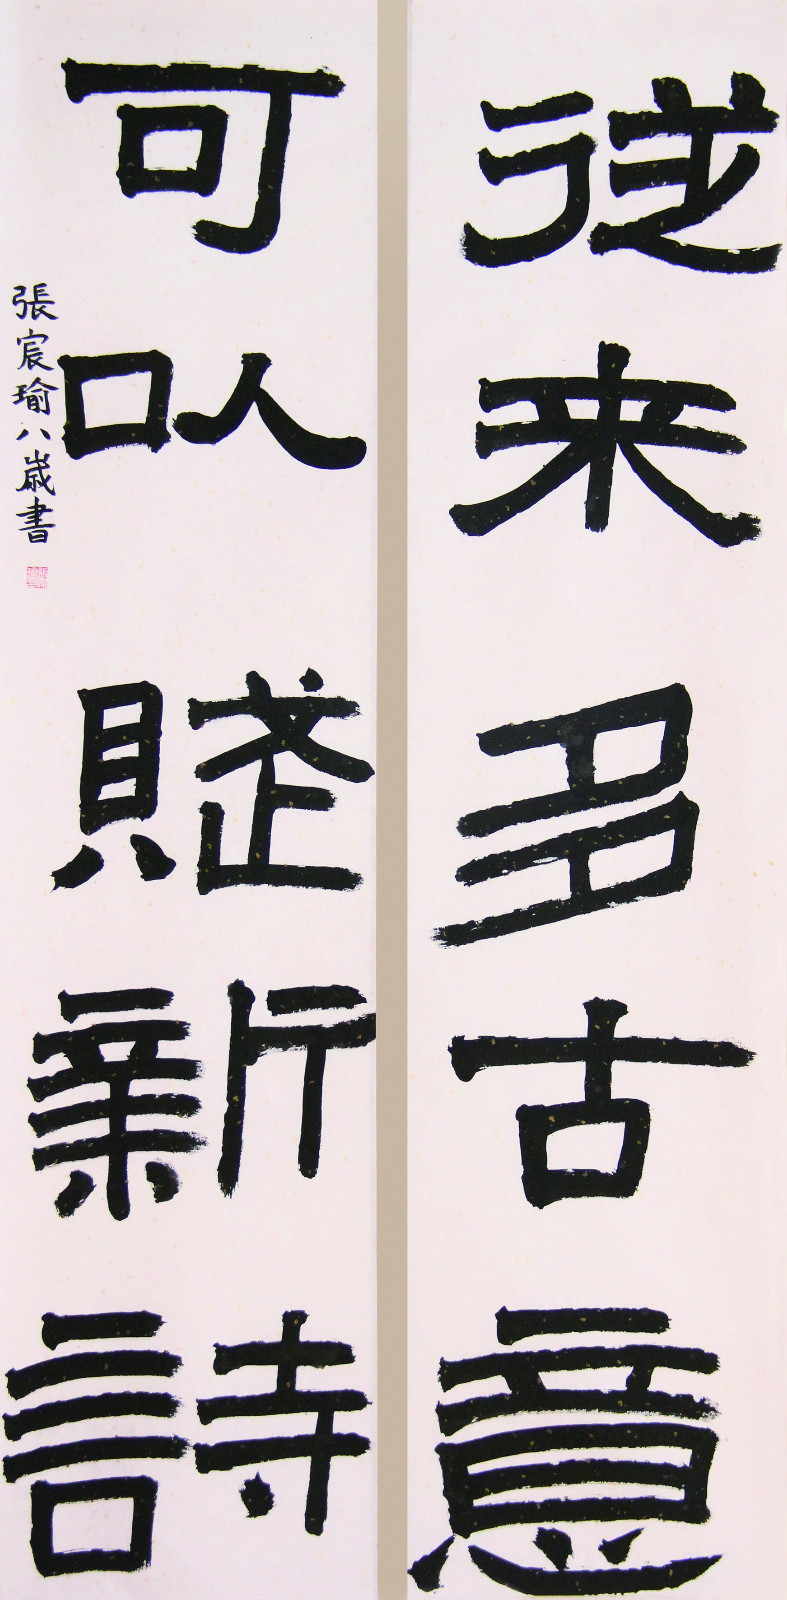 从来多古意
可以賦新詩
張宸瑜八歲書